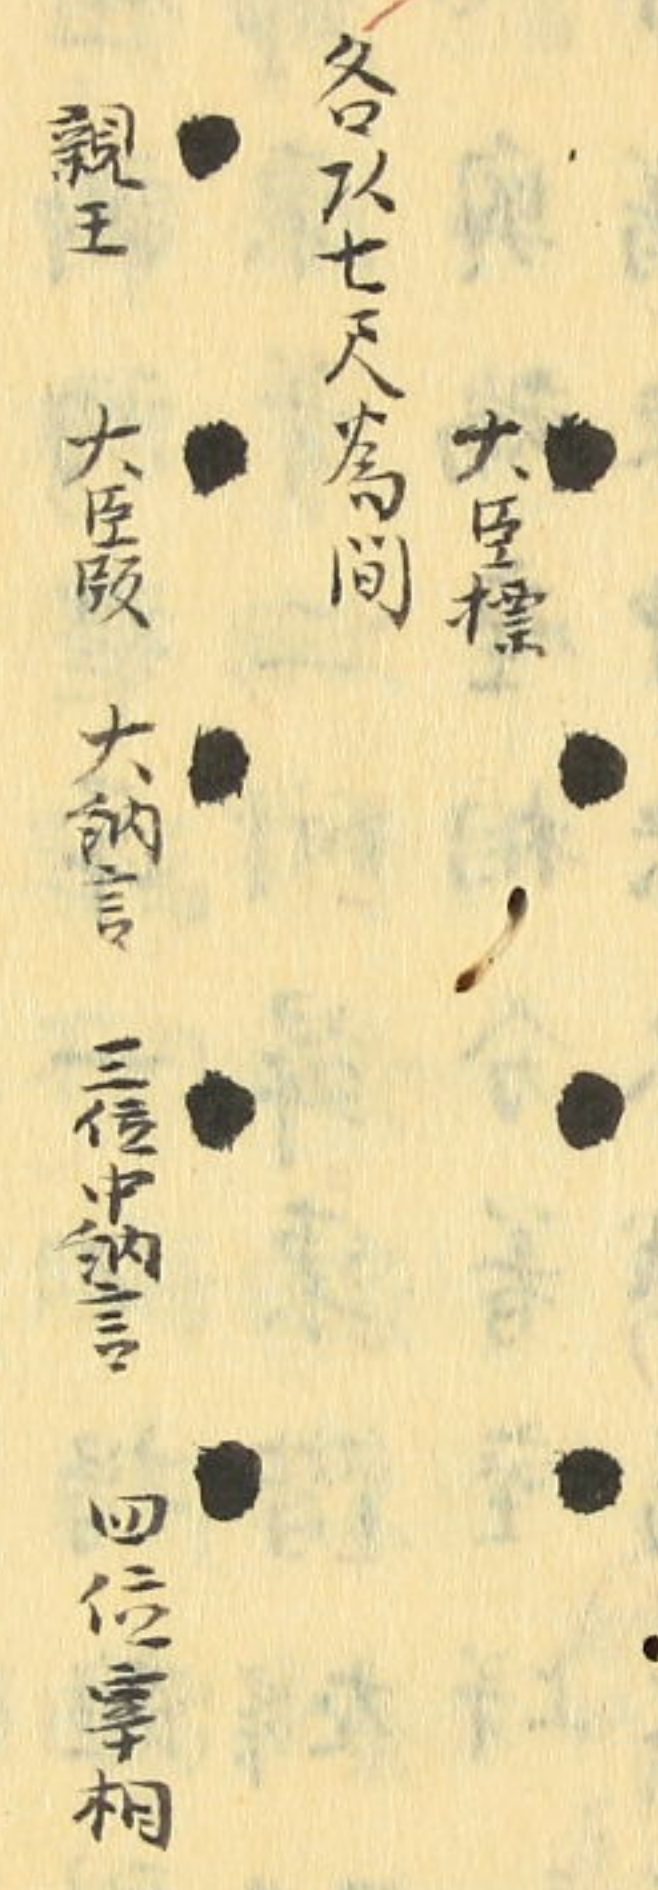 大臣標
各以七尺為間
親王
大臣版
大納言
三位中納言
四位宰相